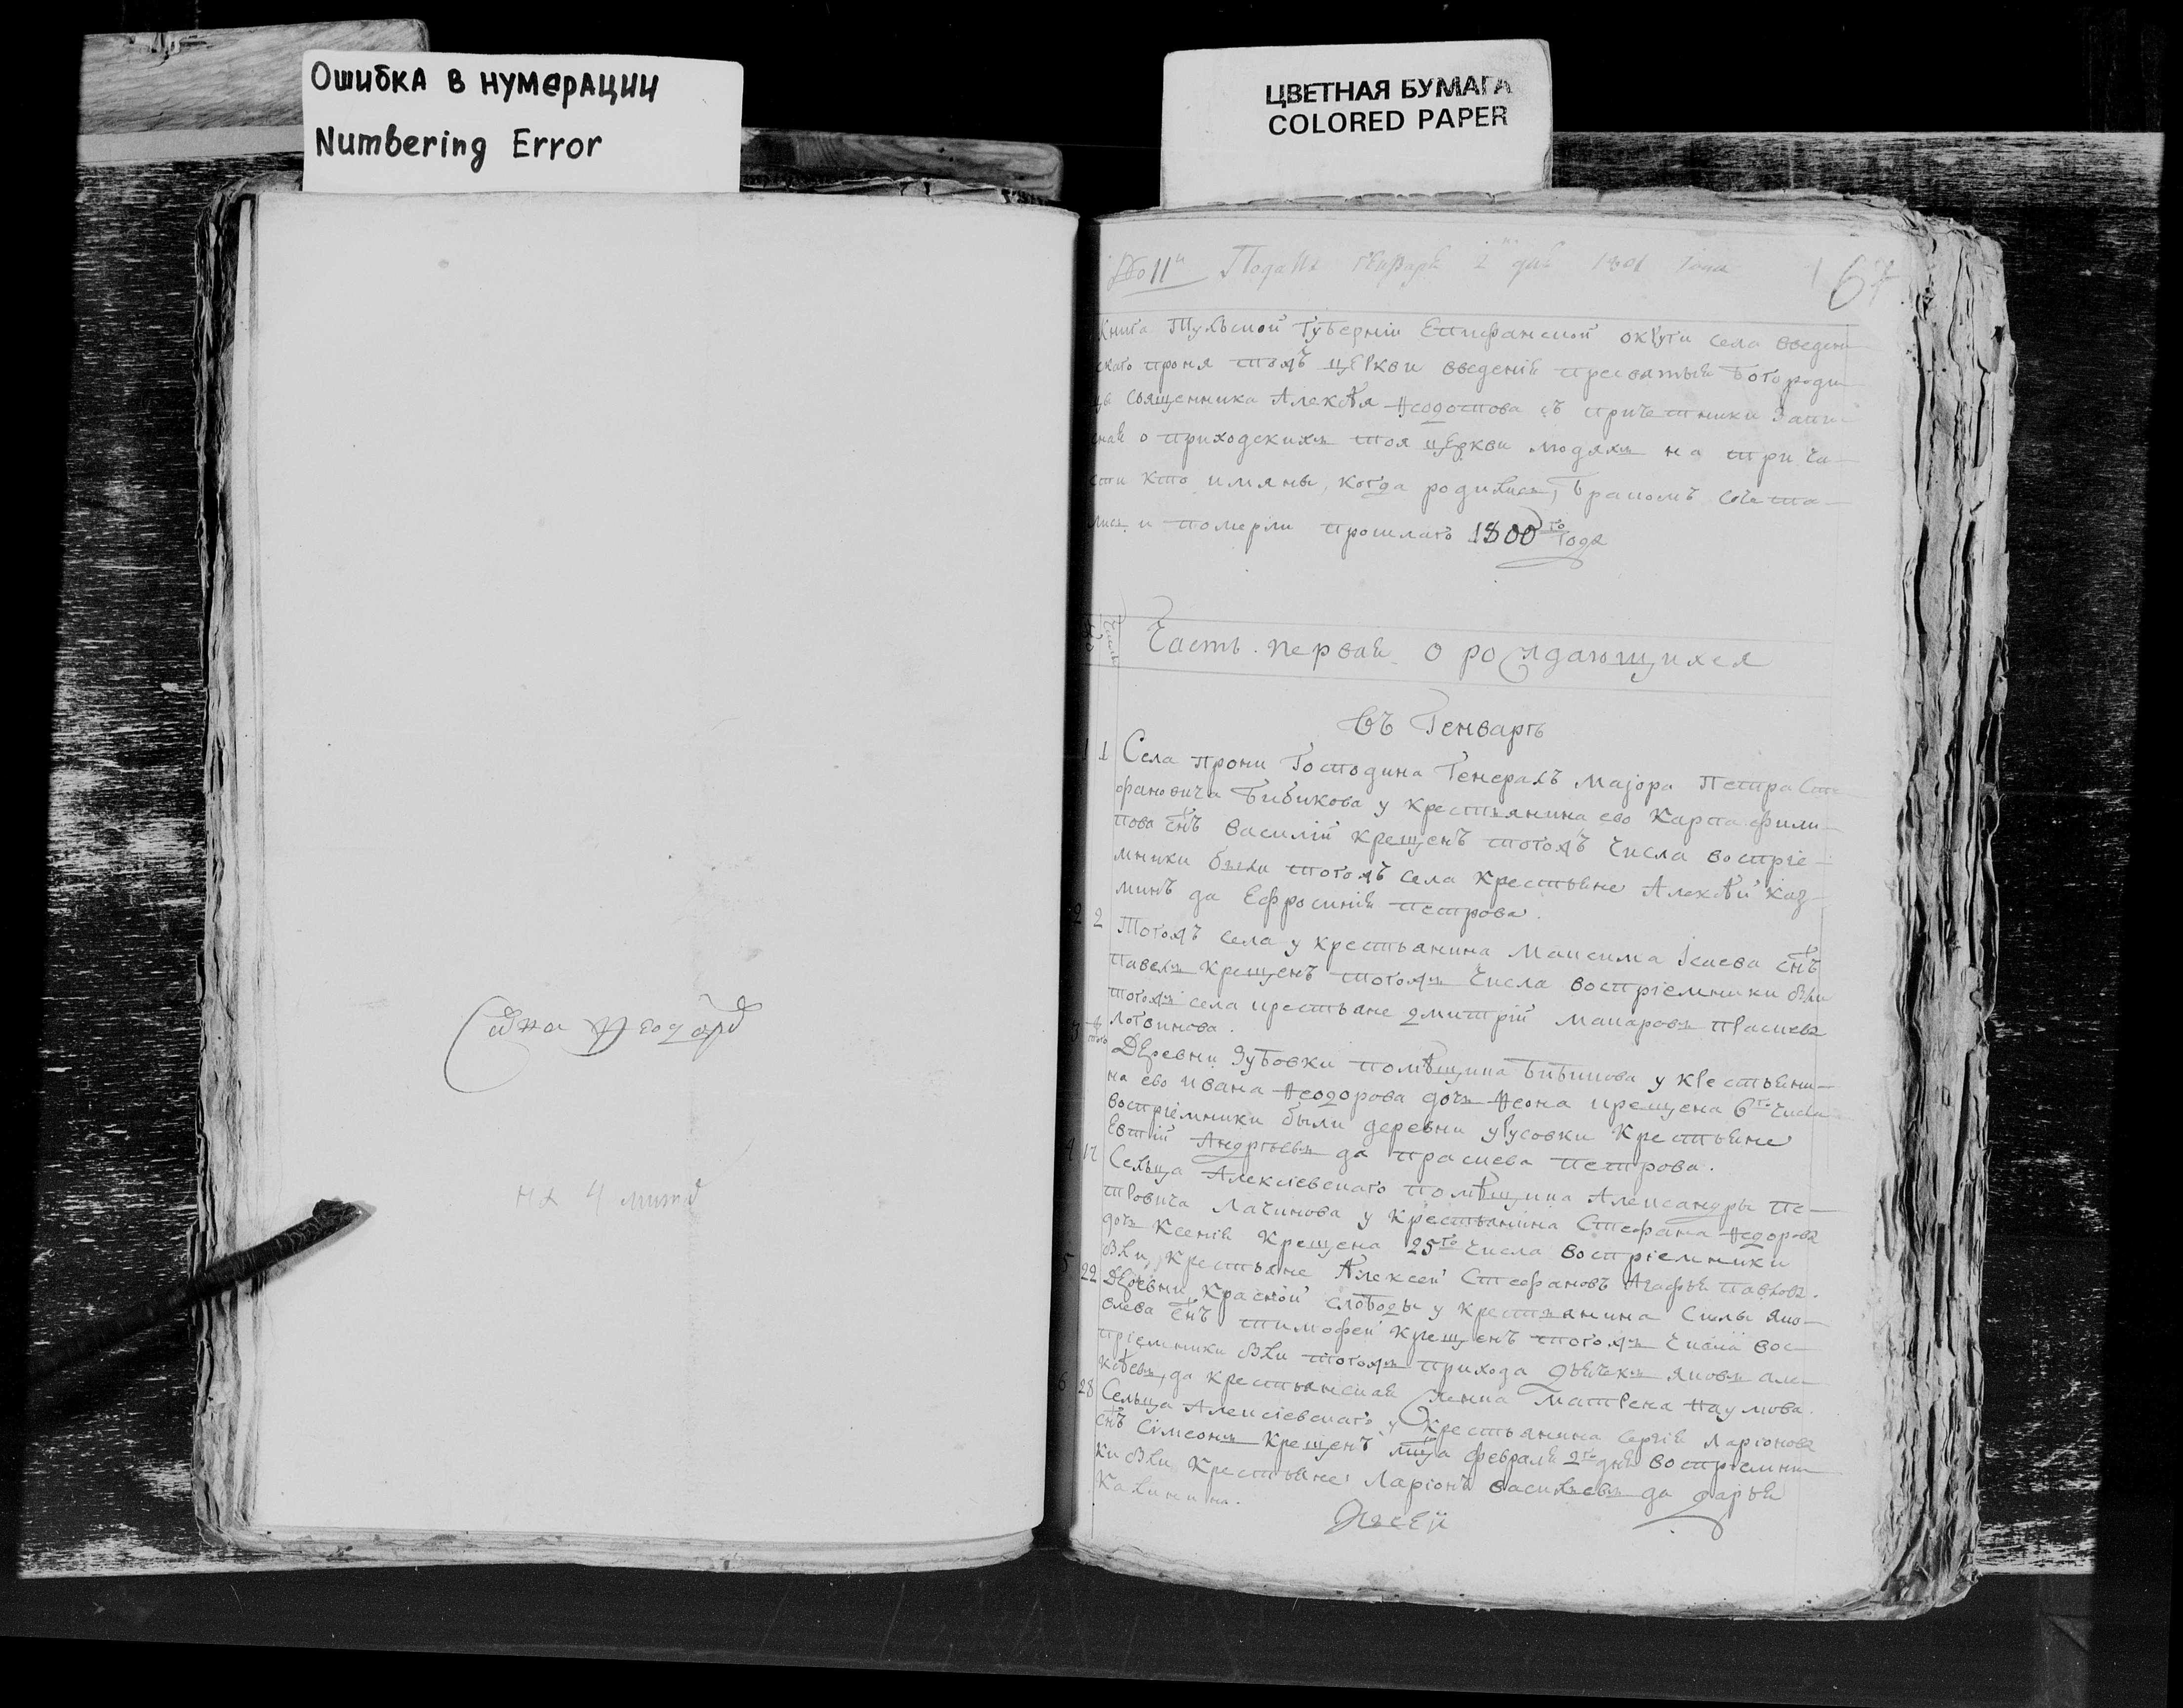 Ошибка в нумерации
Numbering Error
ЦВЕТНАЯ БУМАГА
COLORED PAPER
№ 11й Подана Генваря 2 дня 1801 года
67
Книга Тульской Губерніи Епифанской округи села введен
скаго проня тояжъ церкви введенія пресвятыя Богороди
цы священника Алексѣя Ѳедотова съ причетники запи
ная о приходскихъ тоя церкви людяхъ на три ча
сти кто имяны, когда родились, Бракомъ сочета
лись и померли прошлаго 1800го года
Часть первая о рождающихся
въ Генварѣ
1 1 Села Прони Господина Генералъ Маjора Петра Сте
фановича Бибикова у крестьянина ево Карпа фили
пова снъ василій крещенъ тогожъ числа воспріе
мники были тогожъ села крестьяне Алексѣй Каз
минъ да Ефросинія петрова.
2 2 Тогожъ села у крестьянина Максима Iсаева снъ
павелъ крещенъ тогожъ числа воспріемники были
тогожъ села крестьяне дмитрій макаровъ праскева
логвинова.
3 Деревни Зубовки помѣщика Бибикова у крестьяни
на ево ивана Ѳеодорова дочь крещена 6го числа
воспріемники были деревни урусовки крестьяне
Евтій Андрѣевъ да праскева петрова.
4 17 Сельца Алексіевскаго помѣщика Александры пе
тровича Лачинова у крестьянина Стефана Ѳедорова
дочь Ксенія крещена 25го числа воспріемники
были крестьяне Алексей Стефановъ Агафья павлова.
5 22 Деревни Красной слободы у крестьянина Силы яко
влева снъ тимофей крещенъ тогожъ числа вос
пріемники были тогожъ прихода дьячекъ яковъ але
ксѣевъ, да крестьянская женка матрена наумова.
6 28 Сельца Алексіевскаго у крестьянина Сергія Ларіонова
снъ Сімеонъ крещенъ мца февраля 2го дня воспріемни
ки были крестьяне Ларіонъ васильевъ да дарья
Калинина.
на 4 листа